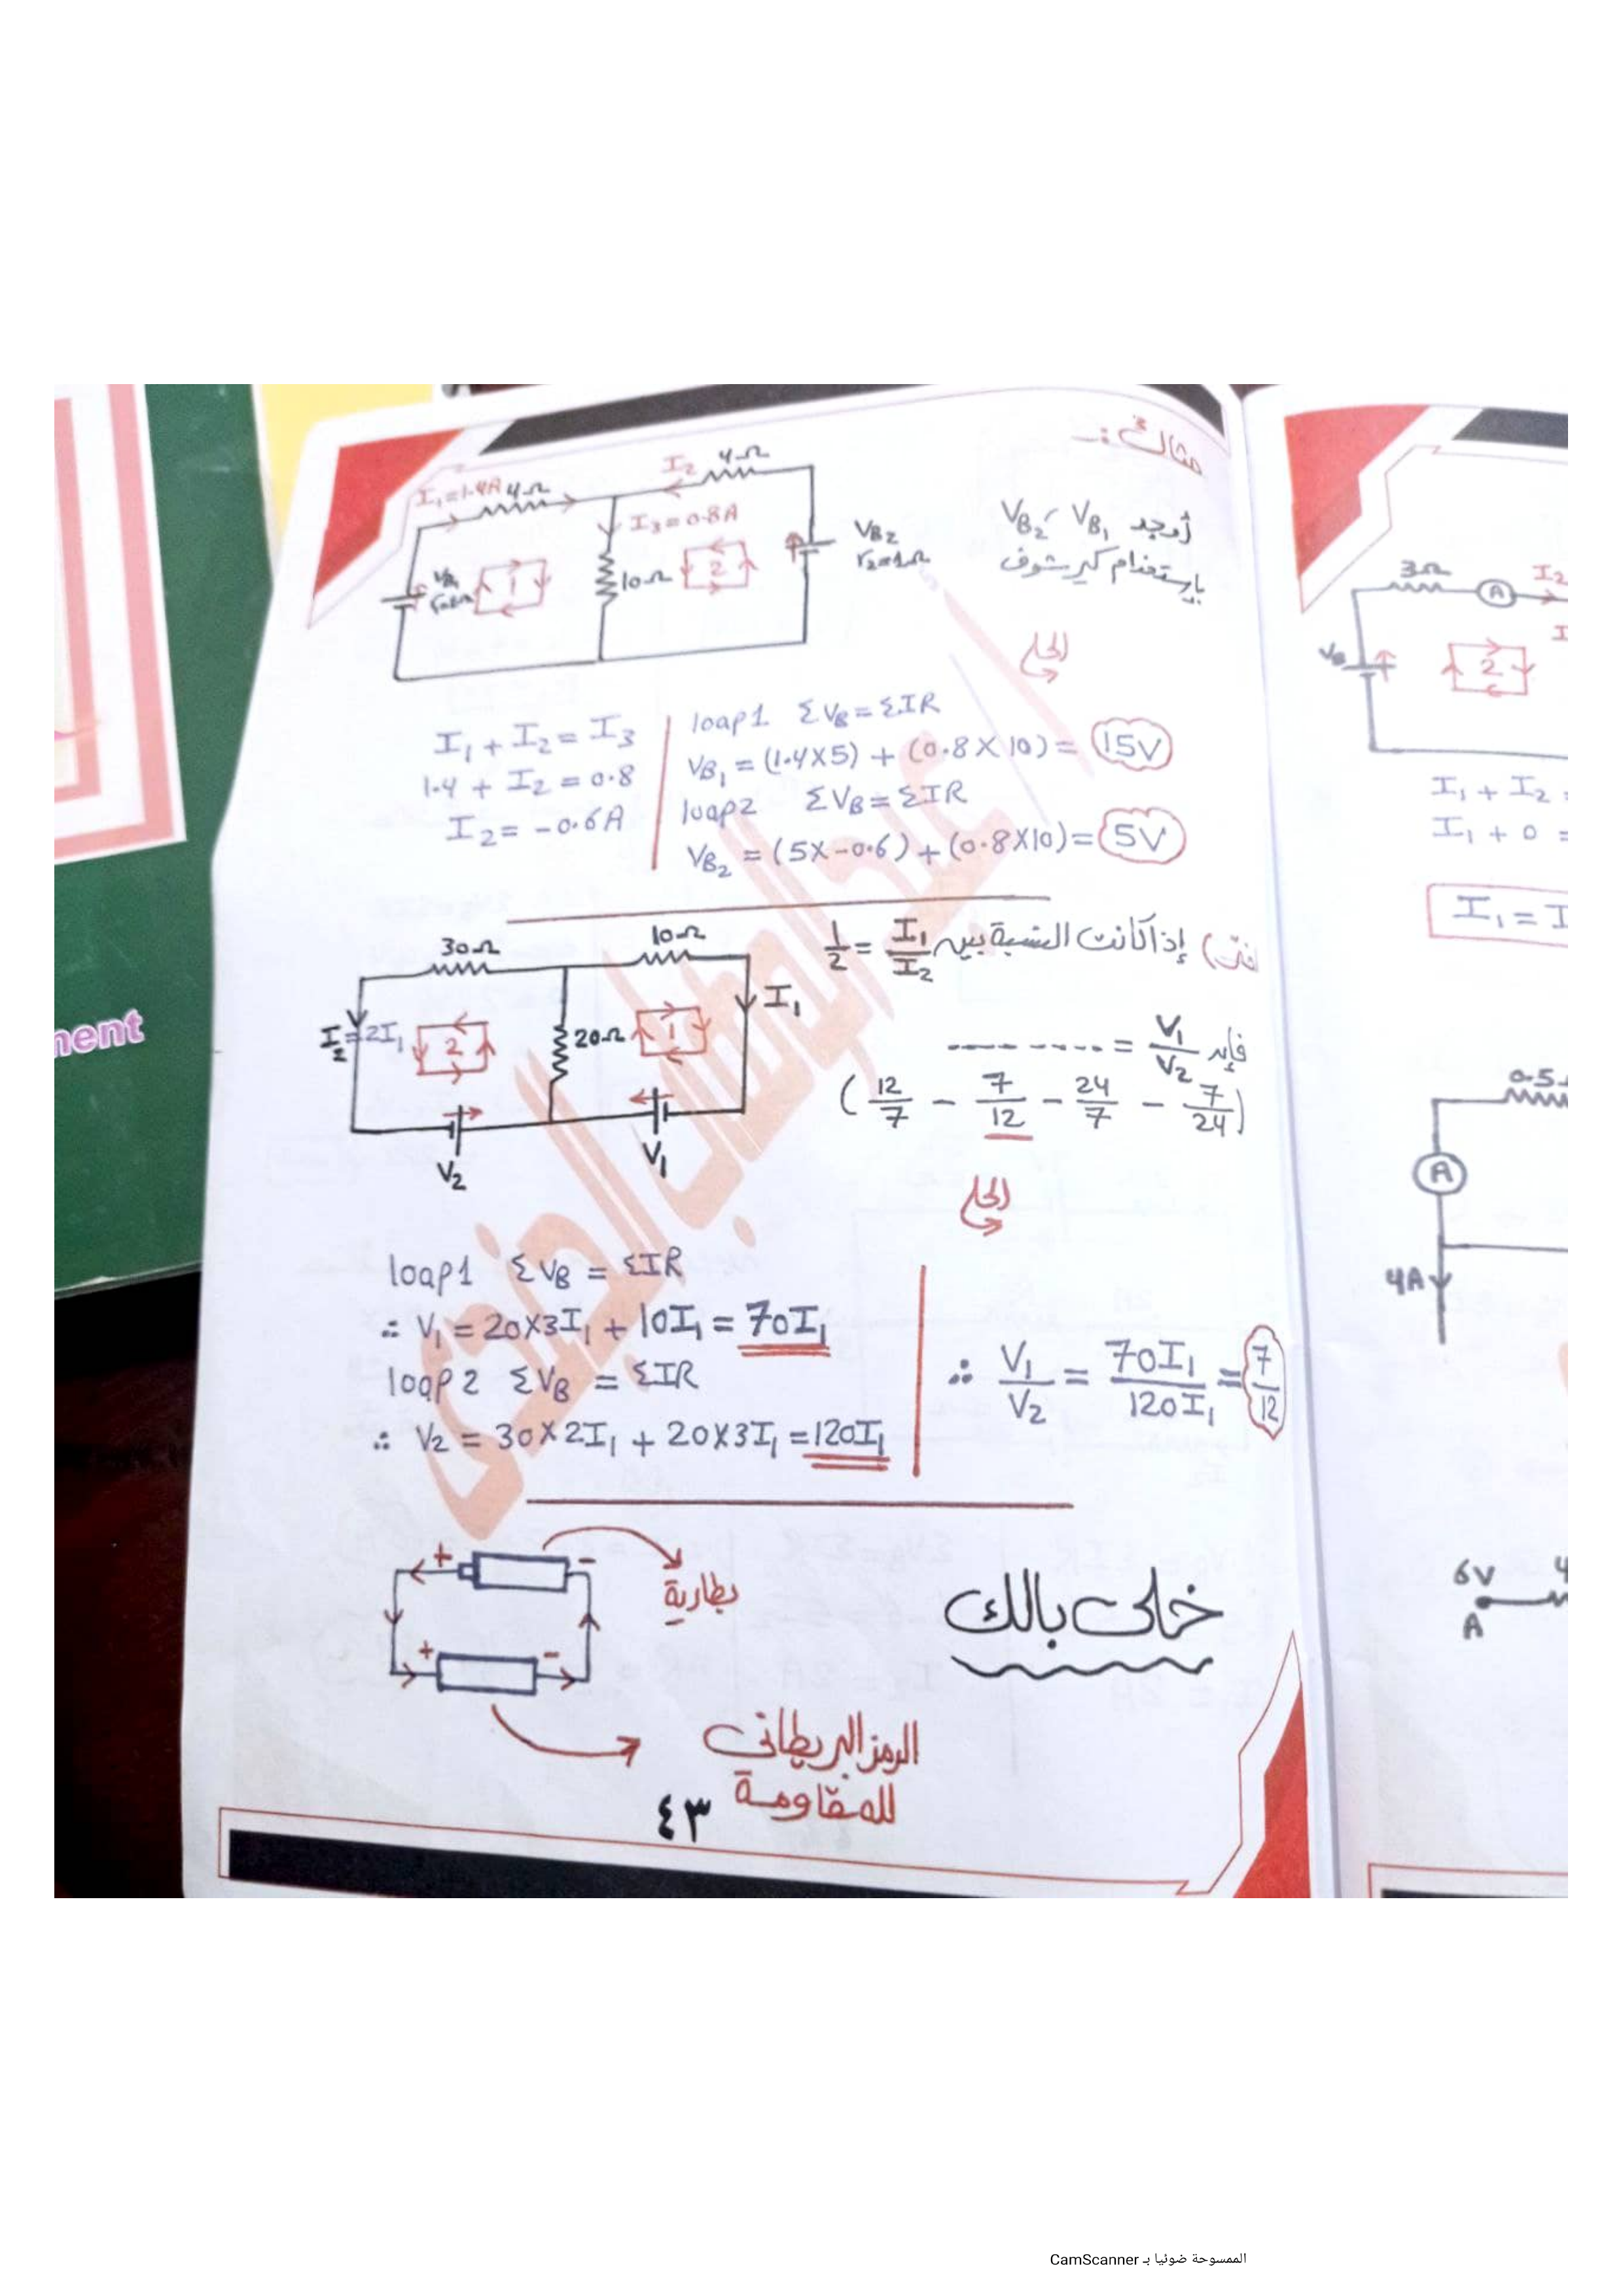 مثال :-
أوجد VB1 ، VB2
باستخدام كيرشوف
I1=1.4A 4Ω
I2
4Ω
I3=0.8A
10Ω
VB1
VB2
r2=1Ω
1
2
الحل
I1 + I2 = I3
1.4 + I2 = 0.8
I2 = -0.6A
loap1 ΣVB = ΣIR
VB1 = (1.4X5) + (0.8X10) = 15V
loap2 ΣVB = ΣIR
VB2 = (5X-0.6) + (0.8X10) = 5V
إذا كانت النسبة بين I1/I2 = 1/2
فإن V1/V2 = -------
(12/7 - 7/12 - 24/7 - 7/24)
30Ω
10Ω
I2=2I1
2
20Ω
1
I1
V2
V1
الحل
loap1 ΣVB = ΣIR
∴ V1 = 20X3I1 + 10I1 = 70I1
loap2 ΣVB = ΣIR
∴ V2 = 30X2I1 + 20X3I1 = 120I1
∴ V1/V2 = 70I1/120I1 = 7/12
خلى بالك
+ -
بطارية
+ -
الرمز البريطانى
للمقاومة
٤٣
ment
3Ω
A
I2
VB
2
I1 + I2
I1 + 0 =
I1 = I
0.5
A
4A
6V
A
الممسوحة ضوئيا بـ CamScanner